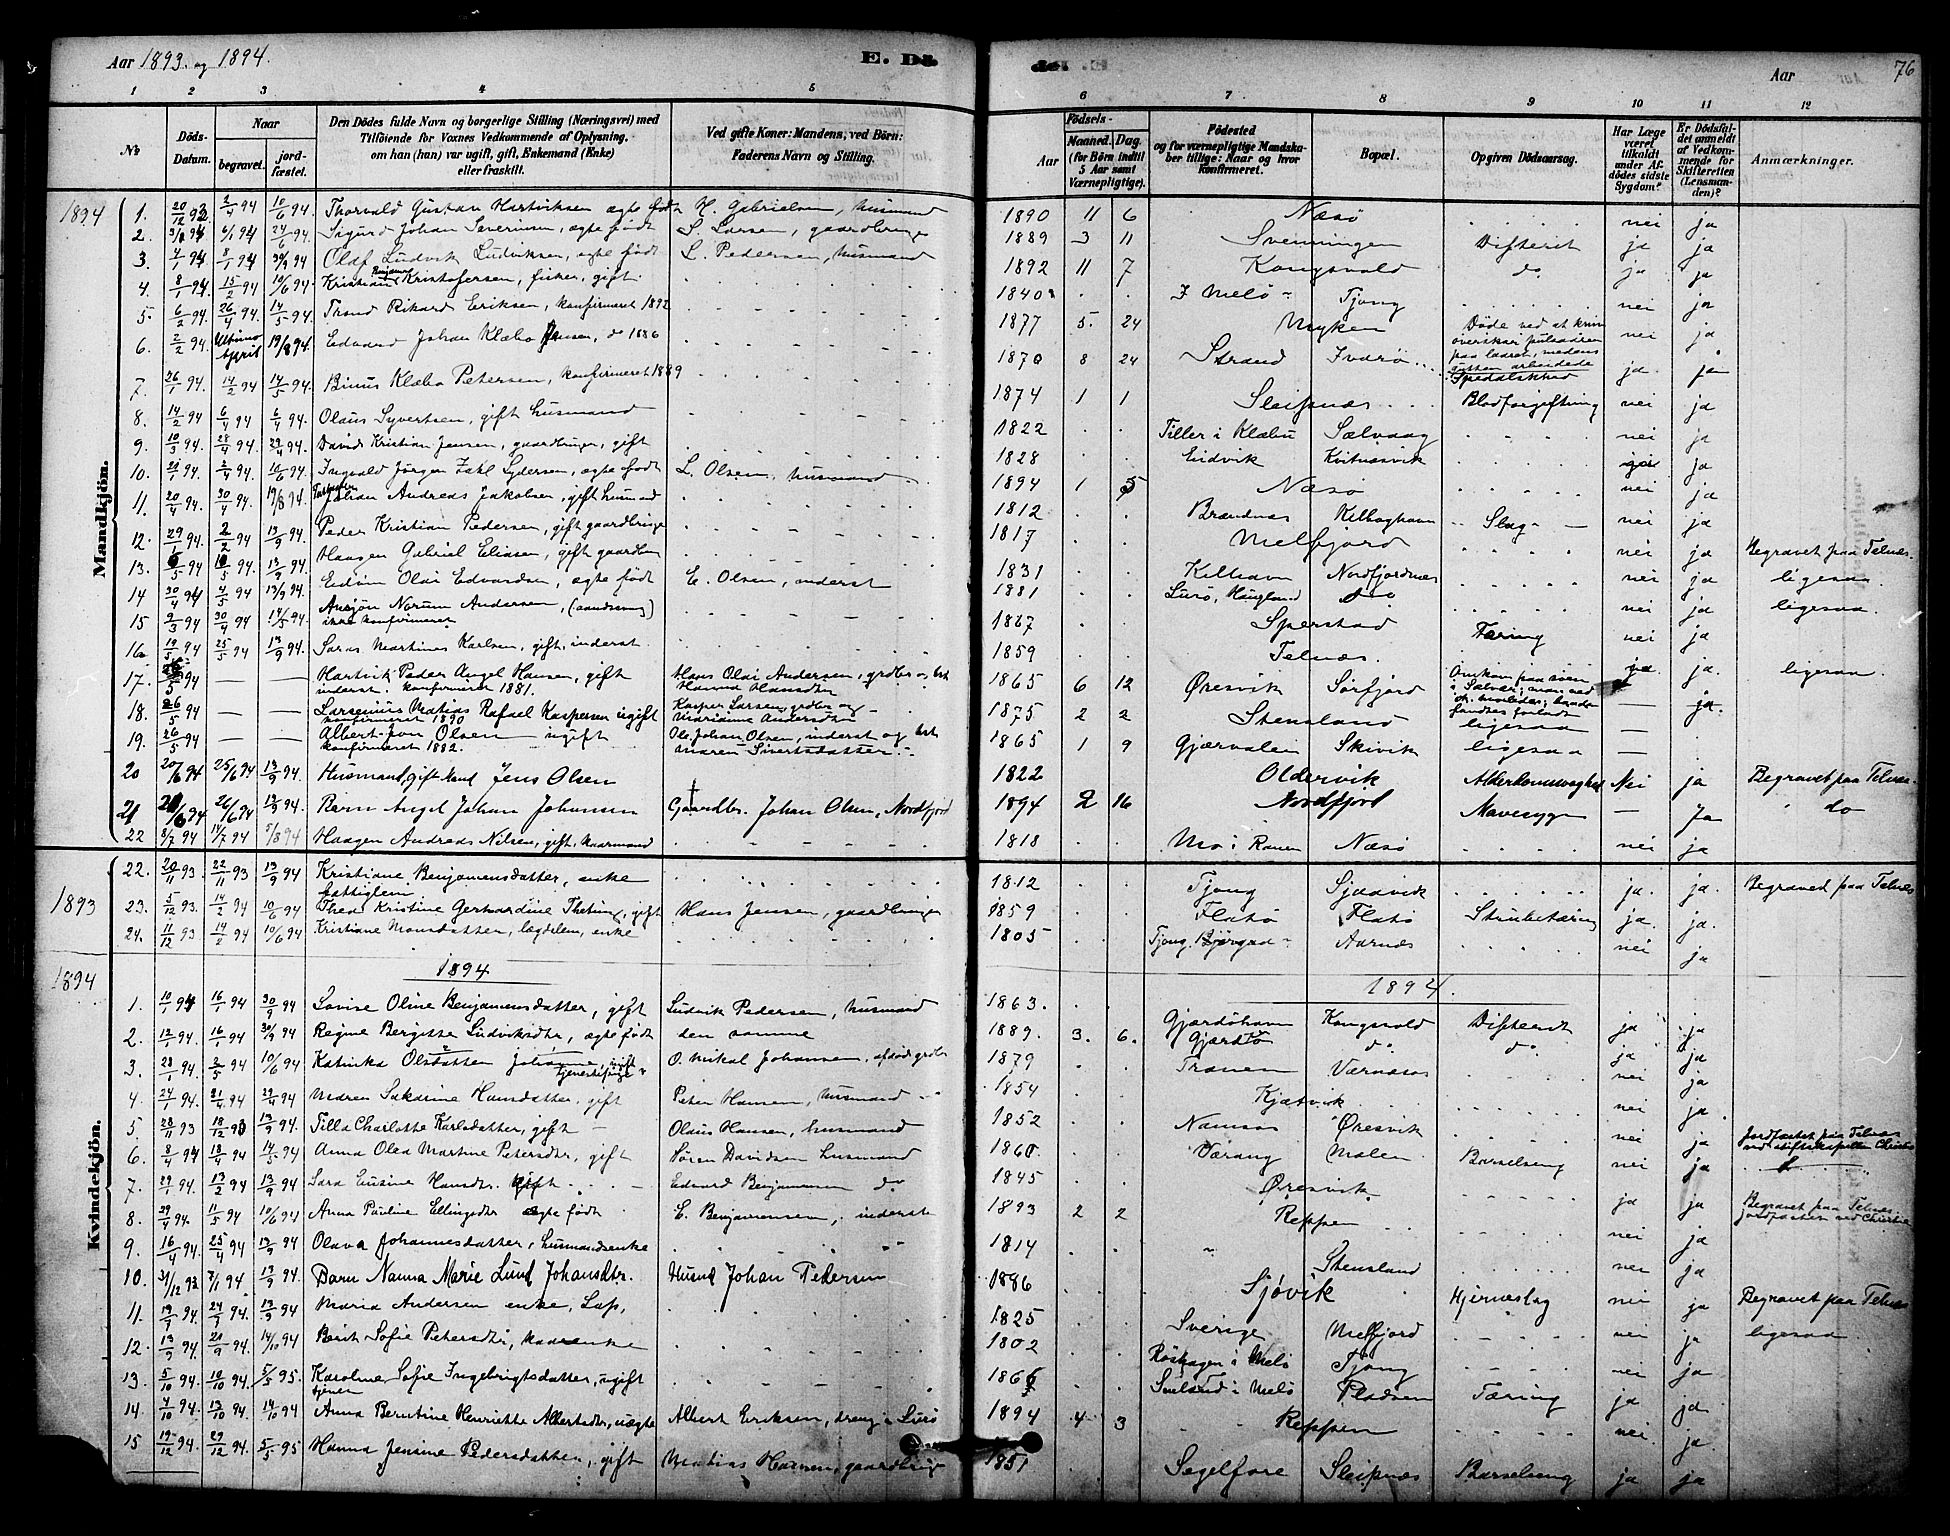 Aar 1893. og 1894.
E. Dö
Aar
76
1 2 3 4 5 6 7 8 9 10 11 12
№
Döds-Datum.
Naar
begravet.
jord-fæstet.
Den Dödes fulde Navn og borgerlige Stilling (Næringsvei) med
Tilföiende for Voxnes Vedkommende af Oplysning,
om han (hun) var ugift, gift, Enkemand (Enke)
eller fraskilt.
Ved gifte Koner: Mandens; ved Börn:
Faderens Navn og Stilling.
Aar
Födsels-
Maaned. Dag.
(for Börn indtil
5 Aar samt
Værnepligtige).
Födested
og for værnepligtige Mandska-
ber tillige: Naar og hvor
konfirmeret.
Bopæl.
Opgiven Dödsaarsag.
Har Læge
været
tilkaldt
under Af-
dödes sidste
Sygdom?
Er Dödsfal-
det anmeldt
af Vedkom-
mende for
Skifteretten
(Lensman-
den)?
Anmærkninger.
Mandkjön.
1894
1. 2/4 94 10/6 94. Thorvald Gustav Hartviksen ægte født H. Gabrielsen, husmand 1890 11 6 Næsø nei ja
2. 6/1 94 24/6 94. Sigurd Johan Severinsen, ægte født S. Larsen, gaardbruger 1889 3 11 Svenningen Difterit ja ja
3. 4/1 94 8/1 94 Olaf Ludvik Ludviksen, ægte født L. Pedersen, husmand 1892 11 7 Kongsvold do ja ja
4. 8/1 94. 15/2 94 10/6 94. Kristian Benjamin Kristofersen, fisker, gift. 1840 Tjong nei ja
5. 6/2 94. 26/4 94. 14/5 94. Trond Rikard Eriksen, konfirmeret 1892 1877 5. 24 Myken Døde ved at nei ja
6. 2/2 94. Ultimo April 19/8 94. Edvard Johan Klæbo Jensen, do 1886 1870 8 24 Strand Spedalskhed ja. ja
7. 26/1 94. 14/2 94 14/5 94. Binus Klæbo Petersen, konfirmeret 1889 1874 1 1 Sleipnæs Blodforgiftning nei ja
8. 14/2 94 6/4 94 6/4 94. Olaus Syvertsen, gift husmand 1822 Tiller i Klæbu Selvaag nei ja
9. 10/3 94. 28/4 94 29/4 94. David Kristian Jensen, gaardbruger, gift 1828 Eidvik Kvitnæsvik ja
10. 2/4 94. 10/6 94. Ingvald Jörgen Lydersen, ægte født L. Olsen, husmand 1894 1 5 Næsø nei ja
11. 20/4 94. 30/4 94. 19/8 94. Johan Andreas Jakobsen, gift husmand 1812 Brændnæs Kilboghavn Slag nei ja
12. 29/1 94. 2/2 94. 13/9 94. Peder Kristian Pedersen, gift gaardbruger 1817 Melfjord nei ja Begravet paa Telnes.
13. 6/5 94 13/9 94. Haagen Gabriel Eliasen, gift gaardbr 1831 Kilhavn Nordfjordnæs nei ja ligesaa.
14 30/4 94 4/5 94 13/9 94. Edvin Olai Edvardsen, ægte født E. Olsen, inderst 1881 Lurø, Haugland nei ja ligesaa.
15 9/3 94 30/4 94 14/5 94. Ansjön Norum Andersen, (aandssvag)
ikke konfirmeret 1867 Sperstad Tæring nei ja
16. 19/5 94 25/5 94 13/9 94. Saras Martinus Karlsen, gift, inderst. 1859 Telnæs. ja. ligesaa
17. 26/5 94 — — Hartvik Peder Angel Hansen, gift
inderst. konfirmeret 1881. Hans Olai Andersen,
Hanna Hansdtr 1865 6 12 Øresvik Sørfjord Omkom paa
18. 26/5 94 — — Larsenius Matias Rafael Kaspersen ugift
konfirmeret 1890 Kasper Larsen, grdbr og
Marianne Andersdtr 1875 2 2 Stensland ligesaa — ja.
19. 26/5 94 — — Albert Jon Olsen ugift
konfirmeret 1882. Ole Johan Olsen, inderst og
Maren Sivertsdatter 1865 1 9 Gjærvalen Skivik ligesaa —
20 20/6 94 25/6 94 13/9 94. Husmand, gift Mand Jens Olsen 1822 Oldervik Alderdomssvaghed Nei ja Begravet paa Telnæs.
21 6 94 26/6 94 13/9 94. Barn Angel Johan Johansen Gaardbr. Johan Olsen, Nordfjord 1894 2 16 Nordfjord Mavesyge — Ja do
22 8/7 94 14/7 94 5/8 94 Haagen Andreas Nilsen, gift, kaarmand 1818 Mo i Ranen Næsø nei ja
Kvindekjön.
1893
22. 20/11 93 22/11 93 13/9 94 Kristiane Benjamensdatter, enke
fattiglem 1812 Tjong Sjaavik ja. ja. Begraved paa Telnæs
23. 5/12 93. 14/2 94 10/6 94 Thea Kristine Gerhardine Thetung, gift Hans Jensen, gaardbruger 1859 Flatø Flatø Strubetæring ja. ja.
24. 11/12 93 14/2 94 10/6 94 Kristiane Monsdatter, lægdslem, enke 1805 Tjong Aarnæs nei ja
1894
1894 1894.
1. 10/1 94 16/1 94 30/9 94 Lovise Oline Benjamensdatter, gift Ludvik Pedersen, husmand 1863. Gjærdøhavn Kongsvold Difterit ja ja
2. 12/1 94. 16/1 94 30/9 94 Regine Bergitte Ludviksdtr, ægte født den samme 1889. 3. 6. Gjærdø do do. ja ja
3. 94. 2/5 94 10/6 94 Katinka Olsdatter O. Mikal Johansen, afdød grdbr 1879 Trænen Værnæs nei ja
4. 24/1 94. 21/4 94 29/4 94 Maren Sakarine Hansdatter, gift Peter Hansen, husmand 1854 Kjøtvik nei ja.
5. 28/11 93 18/12 93 13/9 94 Tilla Charlotte Karlsdatter, gift Olaus Hansen, husmand 1852 Namsos Øresvik nei ja Jordfæstet paa Telnæs
6. 8/4 94 18/4 94 14/5 94 Anna Olea Martine Petersdtr, gift Søren Davidsen husmand 1860 Værang Malen Barselseng nei ja
7. 29/1 94. 13/2 94 13/9 94 Sara Eusine Hansdtr. gift Edvard Benjamensen do 1845 Øresvik ja ja Begravet paa Telnes.
8. 29/4 94. 11/5 94 10/6 94 Anna Pauline Ellingsdtr ægte født E. Benjamensen, inderst 1893 2 2 Reppen nei ja
9. 16/4 94. 25/4 94 13/9 94 Olava Johannesdatter, husmandsenke 1814 Stensland nei ja
10. 31/12 93 7/1 94. 13/9 94. Barn Nanna Marie Lund Johansdtr. Husmd Johan Pedersen 1886 Sjøvik Hjerneslag nei ja Begravet paa Telnes
11. 94. 94. 13/9 94 Maria Andersen enke, Lap, 1825 Sverige Melfjord nei ja ligesaa
12. 13/9 94. 20/9 94. 14/10 94 Berit Sofie Petersdtr, kaarenke 1802 Røshagen i Melø Tjong nei ja
13. 5/10 94. 10/10 94. 5/5 95. Karoline Sofie Ingebrigtsdatter, ugift
tjener 1866 i Melø Pladsen Tæring ja ja.
14. 4/10 94. 13/10 94. 14/10 94 Anna Berntine Henriette Albertsdtr, uægte Albert Eriksen, dreng i Lurø 1894 4 3 Reppen nei. ja.
15 19/12 94. 29/12 94. 5/5 95 Hanna Jensine Pedersdatter, gift Matias Hansen, gaardbruger 1851 Segelfore Sleipnæs Barselseng ja ja